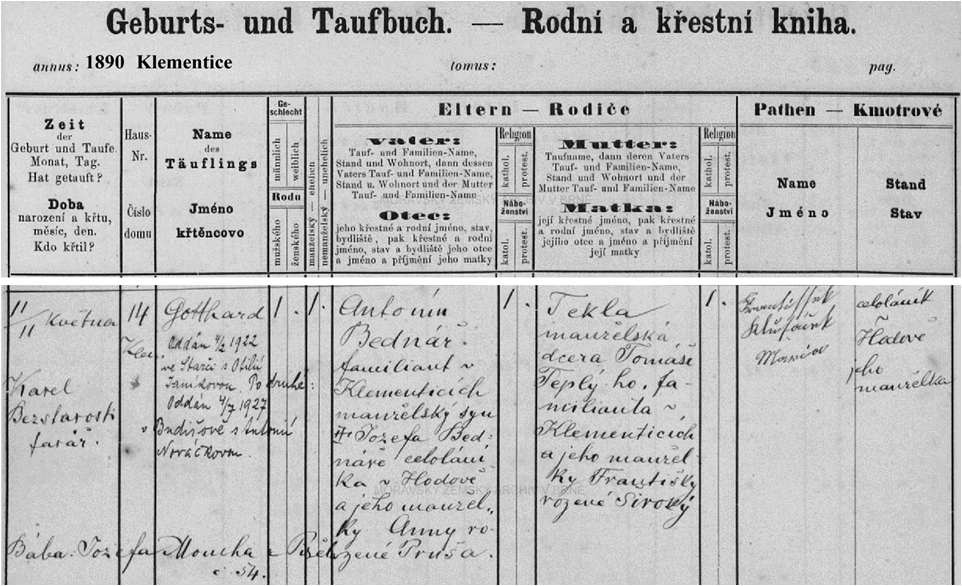 Geburts- und Taufbuch. — Rodní a křestní kniha.
annus: 1890 Klementice tomus: pag.
Zeit
der
Geburt und Taufe.
Monat, Tag.
Hat getauft?
Doba
narození a křtu,
měsíc, den.
Kdo křtil?
Haus-
Nr.
Číslo
domu
Name
des
Täuflings
Jméno
křtěncovo
Ge-
schlecht
männlich
weiblich
Rodu
mužského
ženského
manželský — ehelich
nemanželský — unehelich
Eltern — Rodiče
Vater:
Tauf- und Familien-Name,
Stand und Wohnort, dann dessen
Vaters Tauf- und Familien-Name,
Stand u. Wohnort und der Mutter
Tauf- und Familien-Name
Otec:
jeho křestné a rodní jméno, stav,
bydliště, pak křestné a rodní
jméno, stav a bydliště jeho otce
a jméno a příjmení jeho matky
Religion
kathol.
protest.
Nábo-
ženství
katol.
protest.
Mutter:
Taufname, dann deren Vaters
Tauf- und Familien-Name,
Stand und Wohnort und der
Mutter Tauf- und Familien-Name
Matka:
její křestné jméno, pak křestné
a rodní jméno, stav a bydliště
jejího otce a jméno a příjmení
její matky
Religion
kathol.
protest.
Nábo-
ženství
katol.
protest.
Pathen — Kmotrové
Name
Jméno
Stand
Stav
11/11 Května
Karel
Bezstarosti
farář.
14
Klem.
Gotthard
Oddán 4/2 1922
ve Starči s Otilií
Janíkovou. Po druhé:
Oddán 4/7 1927
v Budišově s Antonií
Novačkovou.
1.
1.
Antonín
Bednář
familiant v
Klementicích
manželský syn
Jozefa Bed-
náře celoláni-
ka v Hodově
a jeho manžel-
ky Anny ro-
zené Pruša.
1.
Tekla
manželská
dcera Tomáše
Teplý ho, fa-
milianta v
Klementicích
a jeho manžel-
ky Františky
rozené Široký
1.
František
Marie
celoláník
Hodově
jeho
manželka
Bába: Jozefa Moucha z
č. 54.
MORAVSKÝ ZEMSKÝ ARCHIV V BRNĚ